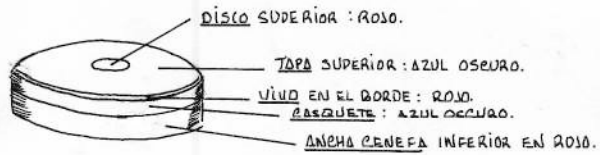 DISCO SUPERIOR : ROJO.
TAPA SUPERIOR : AZUL OSCURO.
VIVO EN EL BORDE : ROJO.
CASQUETE : AZUL OSCURO.
ANCHA CENEFA INFERIOR EN ROJO.